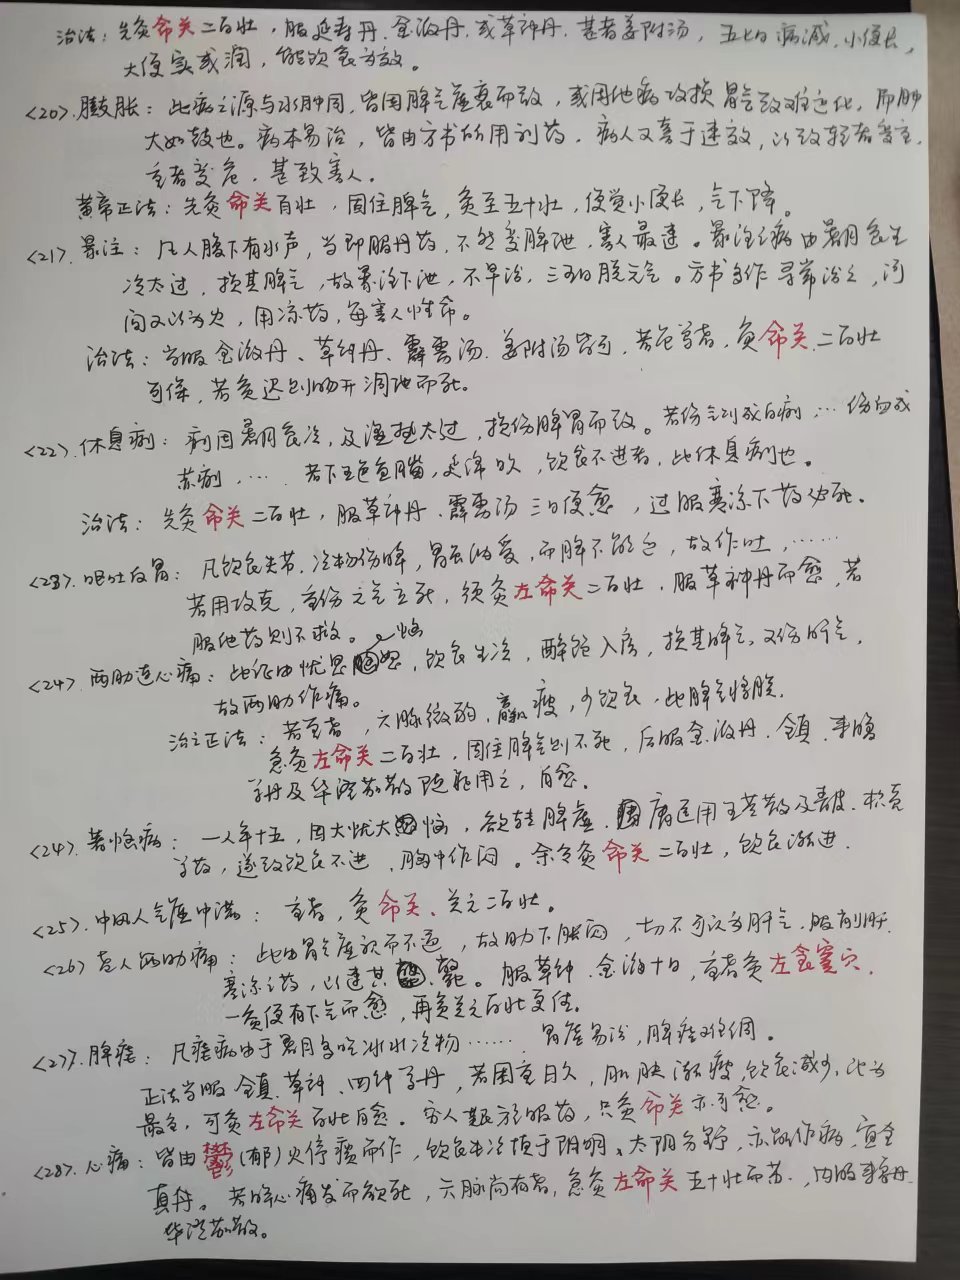 治法：先灸命关二百壮，服延寿丹、金液丹，或草神丹，甚者姜附汤，五七日病减，小便长，
大便实或润，能饮食为效。
<20>.臌胀：此病之源与水肿同，皆因脾气虚衰而致，或因他病攻损胃气致难运化，而肿
大如鼓也。病本易治，皆由方书所用利药，病人又喜于速效，以致轻者变重，
重者变危，甚致害人。
黄帝正法：先灸命关百壮，固住脾气，灸至五十壮，便觉小便长，气下降。
<21>.暴注：凡人腹下有水声，当即服丹药，不然变脾泄，害人最速。暴注之病由暑月食生
冷太过，损其脾气，故暴注下泄，不早治，三五日脱元气。方书多作寻常治之，河
间又以为火，用凉药，每害人性命。
治法：当服金液丹、草神丹、霹雳汤、姜附汤皆可，若危笃者，灸命关二百壮
可保，若灸迟则肠开洞泄而死。
<22>.休息痢：痢因暑月食冷，及湿热太过，损伤脾胃而致。若伤气则成白痢，…伤血成
赤痢，…．若下五色鱼脑，延绵日久，饮食不进者，此休息痢也。
治法：先灸命关二百壮，服草神丹、霹雳汤三日便愈，过服寒凉下药必死。
<23>.呕吐反胃：凡饮食失节，冷物伤脾，胃虽纳受，而脾不能运，故作吐，……
若用攻克，重伤元气立死，须灸左命关二百壮，服草神丹而愈，若
服他药则不救。
<24>.两胁连心痛：此证由忧思恼怒，饮食生冷，醉饱入房，损其脾气，又伤肝气，
故两胁作痛。
治之正法：若重者，六脉微弱，羸瘦，少饮食，此脾气将脱，
急灸左命关二百壮，固住脾气则不死，后服金液丹、全真、来复
等丹及华澄茄散随证用之，自愈。
<24>.著恼病：一人年十五，因大忧大恼，却转脾虚，庸医用五苓散及青皮、枳壳
等药，遂致饮食不进，胸中作闷。余令灸命关二百壮，饮食渐进．
<25>.中风人气虚中满：重者，灸命关、关元二百壮。
<26>老人两胁痛：此由胃气虚积而不通，故胁下胀闷，切不可认为肝气，服削肝
寒凉之药，以速其毙。服草神、金液十日，重者灸左食窦穴，
一灸便有下气而愈，再灸关元百壮更佳。
<27>.脾疟：凡疟病由于暑月多吃冰水冷物……．胃疟易治，脾疟难调。
正法当服全真、草神、四神等丹，若困重日久，肌肤渐瘦，饮食减少，此为
最重，可灸左命关百壮自愈。穷人艰于服药，只灸命关亦可愈。
<28>.心痛：皆由鬱(郁)火停痰而作，饮食生冷填于阳明、太阴分野，亦能作病，宜全
真丹。若卒心痛发而欲死，六脉尚有者，急灸左命关五十壮而苏．，内服来复丹、
华澄茄散。